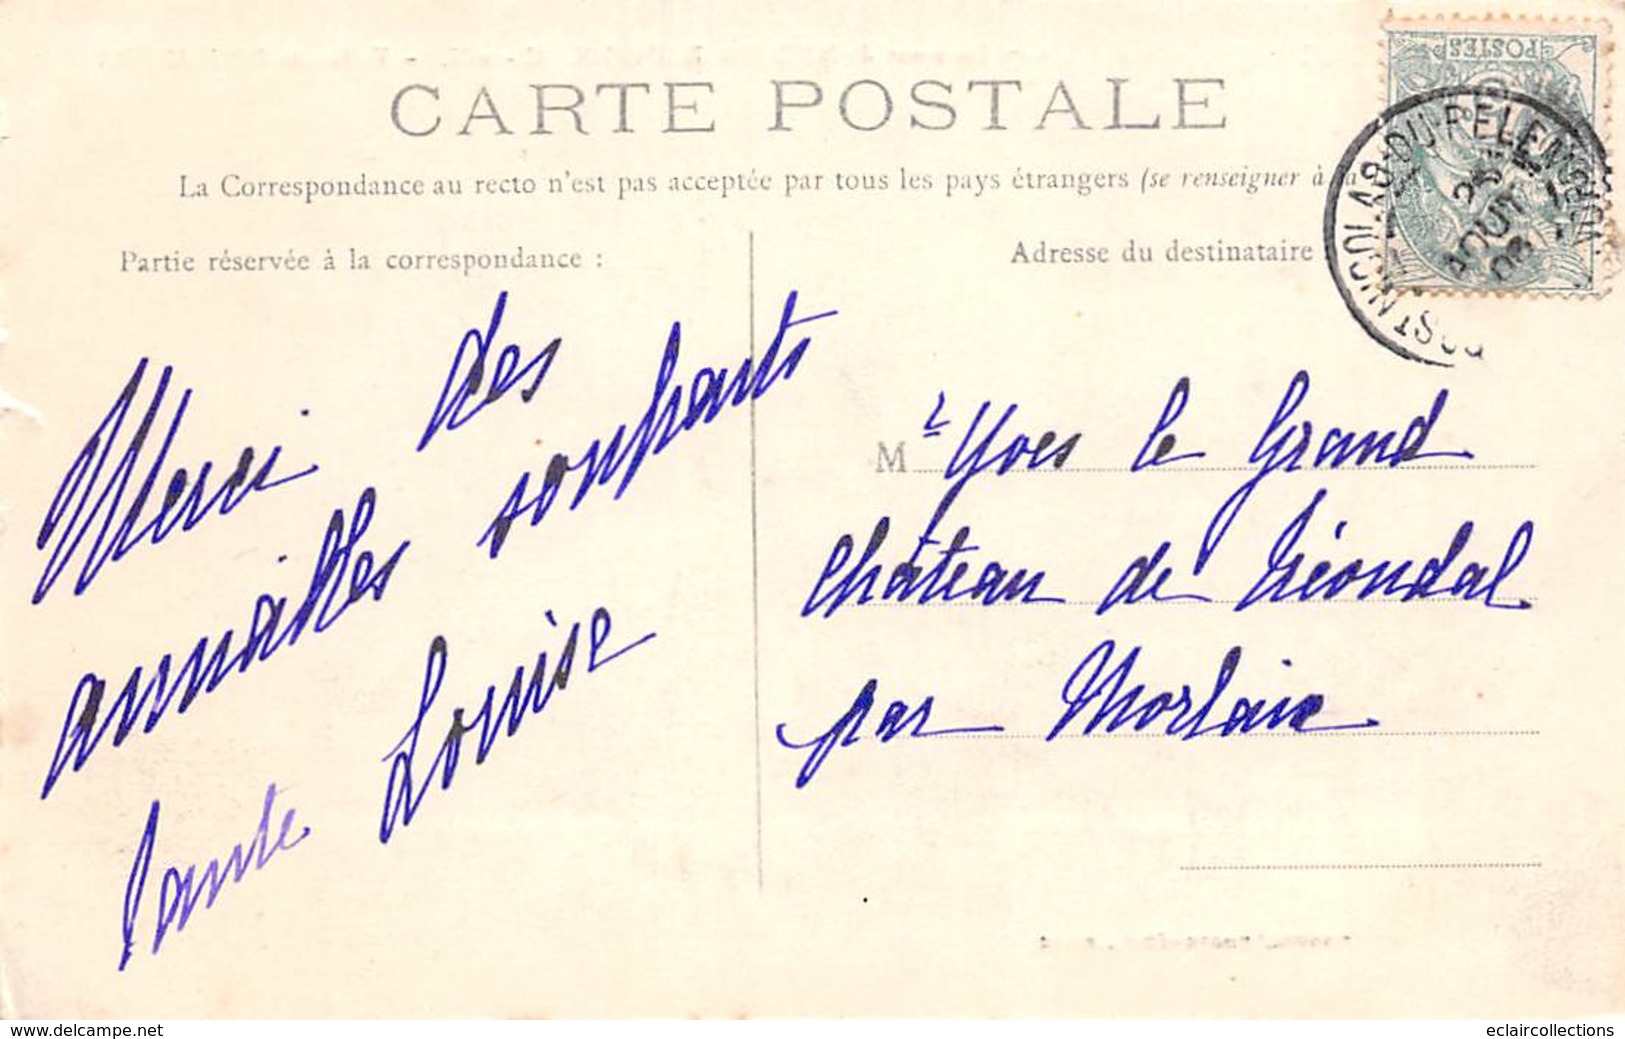 CARTE POSTALE
La Correspondance au recto n'est pas acceptée par tous les pays étrangers (se renseigner à la
Partie réservée à la correspondance :
Adresse du destinataire
POSTES
ST NICOLAS-DU-PELEM
25
AOUT
08
Merci des
aimables souhaits
Tante Louise
Mr Yves le Grand
Château de Kéondal
par Morlaix
www.delcampe.net
eclaircollections